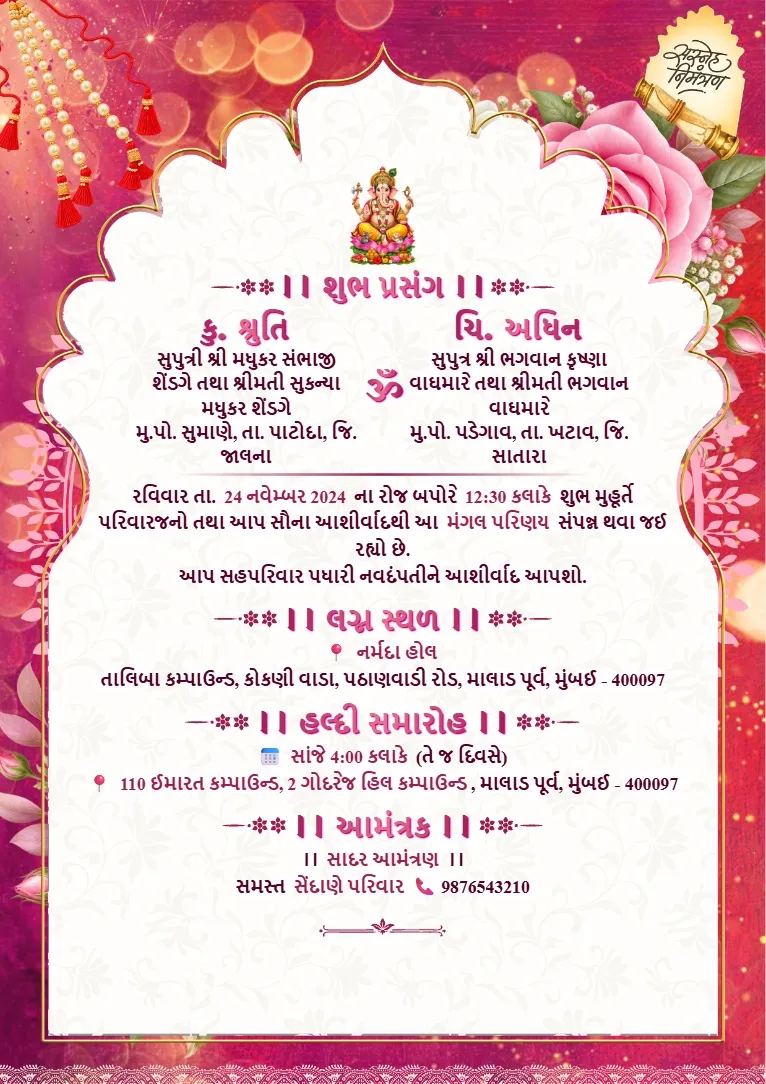 सस्नेह
निमंत्रण
|| શુભ પ્રસંગ ||
કુ. શ્રુતિ
સુપુત્રી શ્રી મધુકર સંભાજી
શેંડગે તથા શ્રીમતી સુકન્યા
મધુકર શેંડગે
મુ.પો. સુમાણે, તા. પાટોદા, જિ.
જાલના
ૐ
ચિ. અધિન
સુપુત્ર શ્રી ભગવાન કૃષ્ણા
વાઘમારે તથા શ્રીમતી ભગવાન
વાઘમારે
મુ.પો. પડેગાવ, તા. ખટાવ, જિ.
સાતારા
રવિવાર તા. 24 નવેમ્બર 2024 ના રોજ બપોરે 12:30 કલાકે શુભ મુહૂર્તે
પરિવારજનો તથા આપ સૌના આશીર્વાદથી આ મંગલ પરિણય સંપન્ન થવા જઈ
રહ્યો છે.
આપ સહપરિવાર પધારી નવદંપતીને આશીર્વાદ આપશો.
|| લગ્ન સ્થળ ||
નર્મદા હોલ
તાલિબા કમ્પાઉન્ડ, કોકણી વાડા, પઠાણવાડી રોડ, માલાડ પૂર્વ, મુંબઈ - 400097
|| હલ્દી સમારોહ ||
સાંજે 4:00 કલાકે (તે જ દિવસે)
110 ઈમારત કમ્પાઉન્ડ, 2 ગોદરેજ હિલ કમ્પાઉન્ડ , માલાડ પૂર્વ, મુંબઈ - 400097
|| આમંત્રક ||
|| સાદર આમંત્રણ ||
સમસ્ત સેંદાણે પરિવાર 📞 9876543210